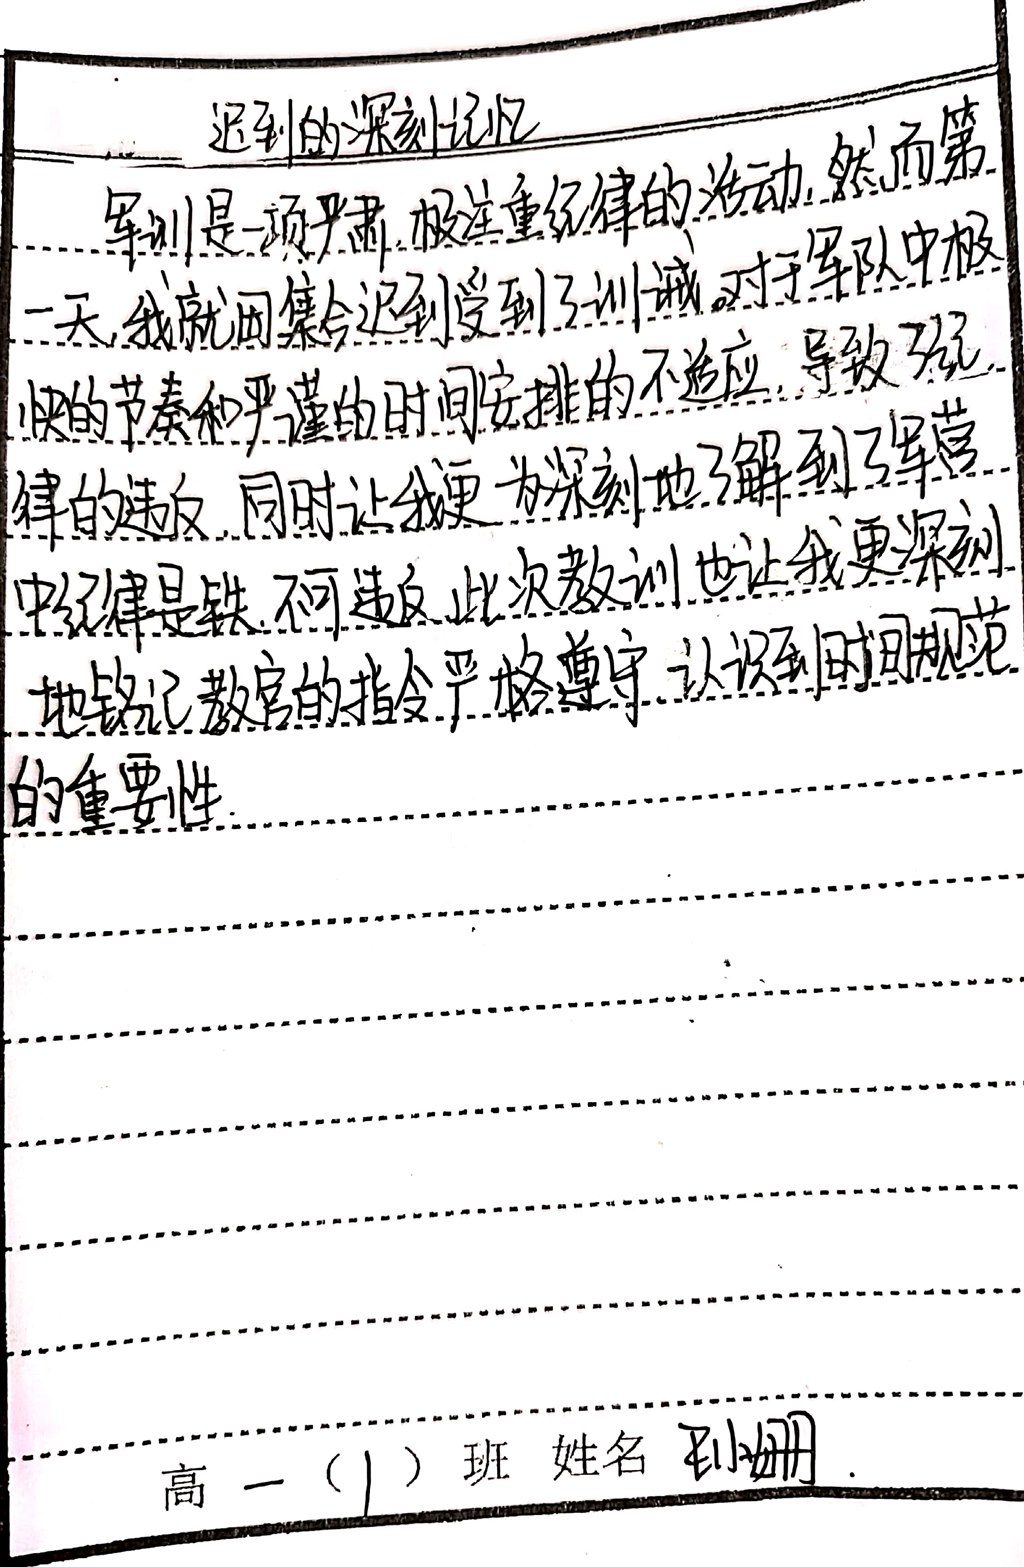 迟到的深刻记忆
军训是一项严肃,极注重纪律的活动,然而第
一天,我就因集合迟到受到了训诫。对于军队中极
快的节奏和严谨的时间安排的不适应,导致了纪
律的违反,同时让我更为深刻地了解到了军营
中纪律是铁,不可违反,此次教训也让我更深刻
地铭记教官的指令严格遵守,认识到时间规范
的重要性.
高一(1)班 姓名 小姗.